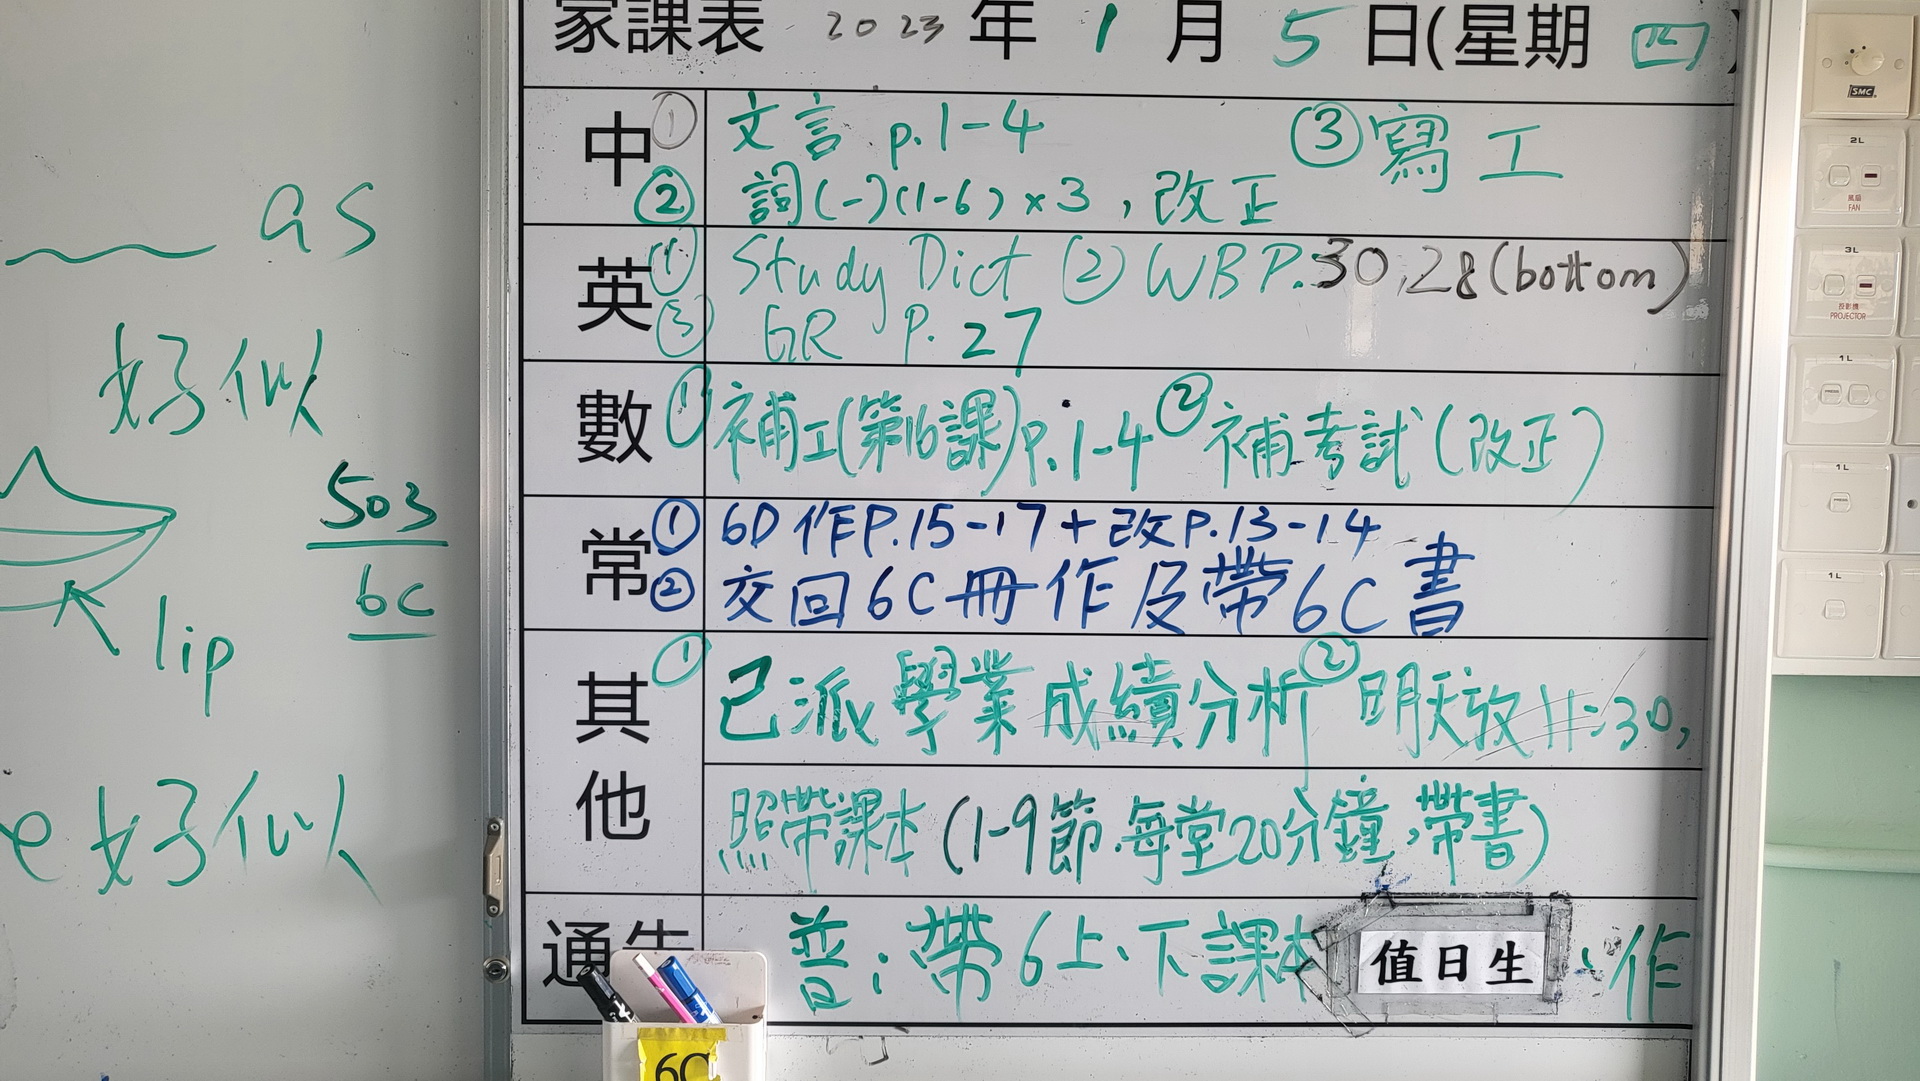 as
好似
503
6C
lip
e 好似
家課表 2023 年 1 月 5 日(星期 四)
中 ① 文言 p.1-4 ③ 寫工
② 詞(一)(1-6)×3，改正
英 ① Study Dict ② WB P.30,28(bottom)
③ GR P.27
數 ① 補工(第16課)p.1-4 ② 補考試(改正)
常 ① 6D作P.15-17+改P.13-14
② 交回6C冊作及帶6C書
其他 ① 已派學業成績分析 ② 明天放11:30,
照帶課本(1-9節,每堂20分鐘,帶書)
通告 普:帶6上、下課本 值日生 作
6C
SMC
2L
風扇
FAN
3L
投影機
PROJECTOR
1L
PRESS
1L
PRESS
1L